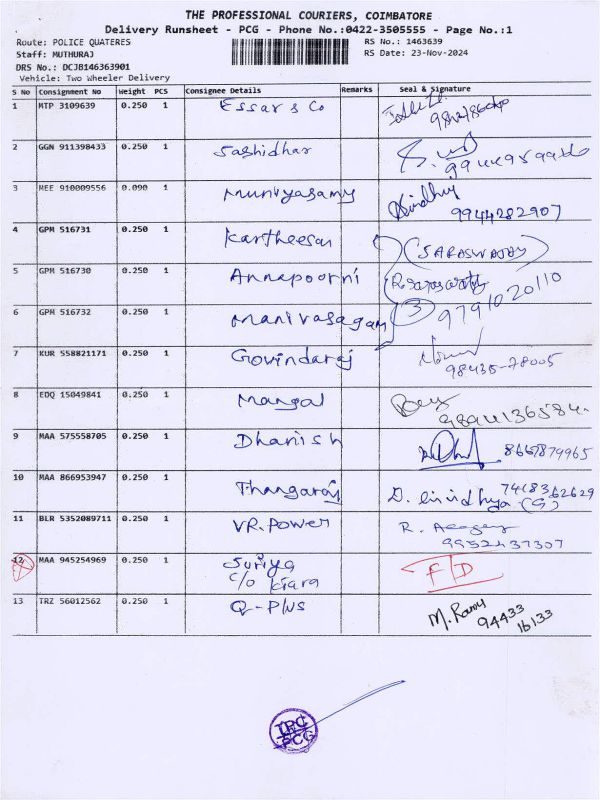 THE PROFESSIONAL COURIERS, COIMBATORE
Delivery Runsheet - PCG - Phone No.:0422-3505555 - Page No.:1
Route: POLICE QUATERES RS No.: 1463639
Staff: MUTHURAJ RS Date: 23-Nov-2024
DRS No.: DCJB146363901
Vehicle: Two Wheeler Delivery
S No Consignment No Weight PCS Consignee Details Remarks Seal & Signature
1 MTP 3109639 0.250 1 Essar & Co
2 GGN 911398433 0.250 1 Sashidhar
3 MEE 910009556 0.090 1 Muniyasamy Sindhuj 9944282907
4 GPM 516731 0.250 1 Kartheesan (SARASWATHY)
5 GPM 516730 0.250 1 Annapoorni R. Saraswathy
6 GPM 516732 0.250 1 Manivasagam 3 9791020110
7 KUR 558821171 0.250 1 Govindaraj 98435-78005
8 EDQ 15049841 0.250 1 Mangal 9894136584
9 MAA 575558705 0.250 1 Dhanish 8667879965
10 MAA 866953947 0.250 1 Thangaraj 7418362629
11 BLR 5352089711 0.250 1 VR. Power R. 9952437307
12 MAA 945254969 0.250 1 Suriya F/D
c/o Kiara
13 TRZ 56012562 0.250 1 Q-Plus M. Ramy 94433
16133
IRC
PCG